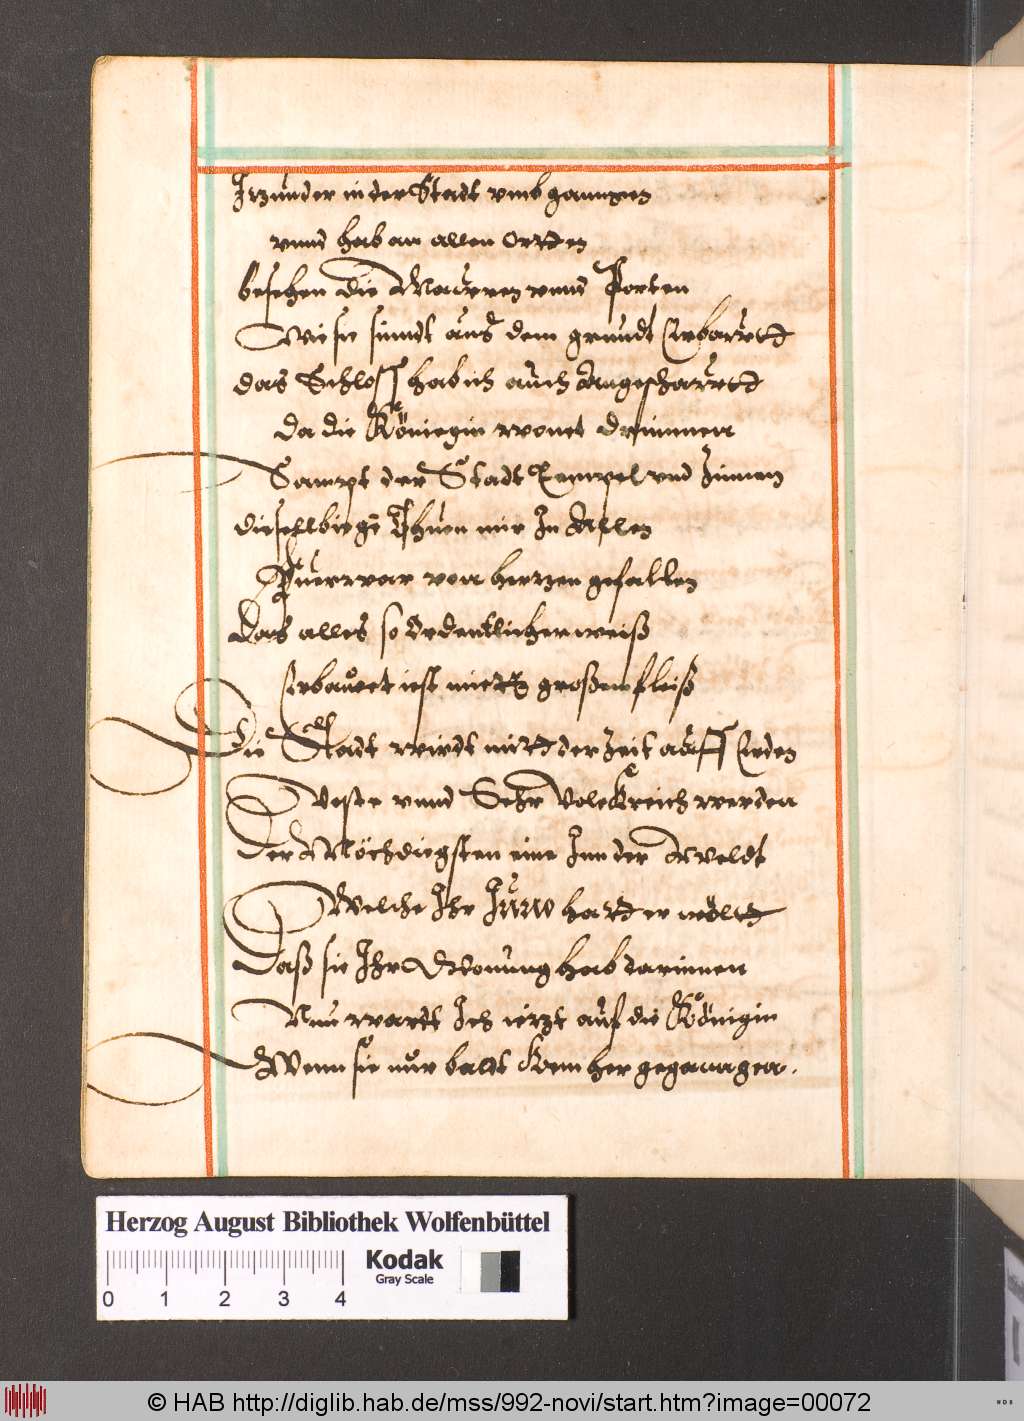 Itzunder in der Stadt vmbgannngen
vnnd hab an allen Ortten
besehen die Mauren vnnd Porten
Wie sie sinndt aus dem grundt Erbauett
das Schloss hab ich auch Angeschauett
Da die Köniegin wonet drinnnen
Sampt der Stadt Tempel vnd Zinnen
dieselbiege Thuen mir In Allen
Fuerwar von hertzen gefallen
Das alles so Ordentlicher weiß
Erbauet iest mitt großem fleiß
Die Stadt wirdt mitt der Zeit auff Erden
Veste vnnd Sehr Volckreich werden
Der Möchdiegsten eine Inn der Weldt
Welche Ihr Juno hatt erwöltt
Daß sie Ihr Wonung hab darinnen
Nun wartt Ich ietzt auf die Königin
Wenn sie nur baltt Kem her gegangen.
Herzog August Bibliothek Wolfenbüttel
Kodak
Gray Scale
0 1 2 3 4
© HAB http://diglib.hab.de/mss/992-novi/start.htm?image=00072